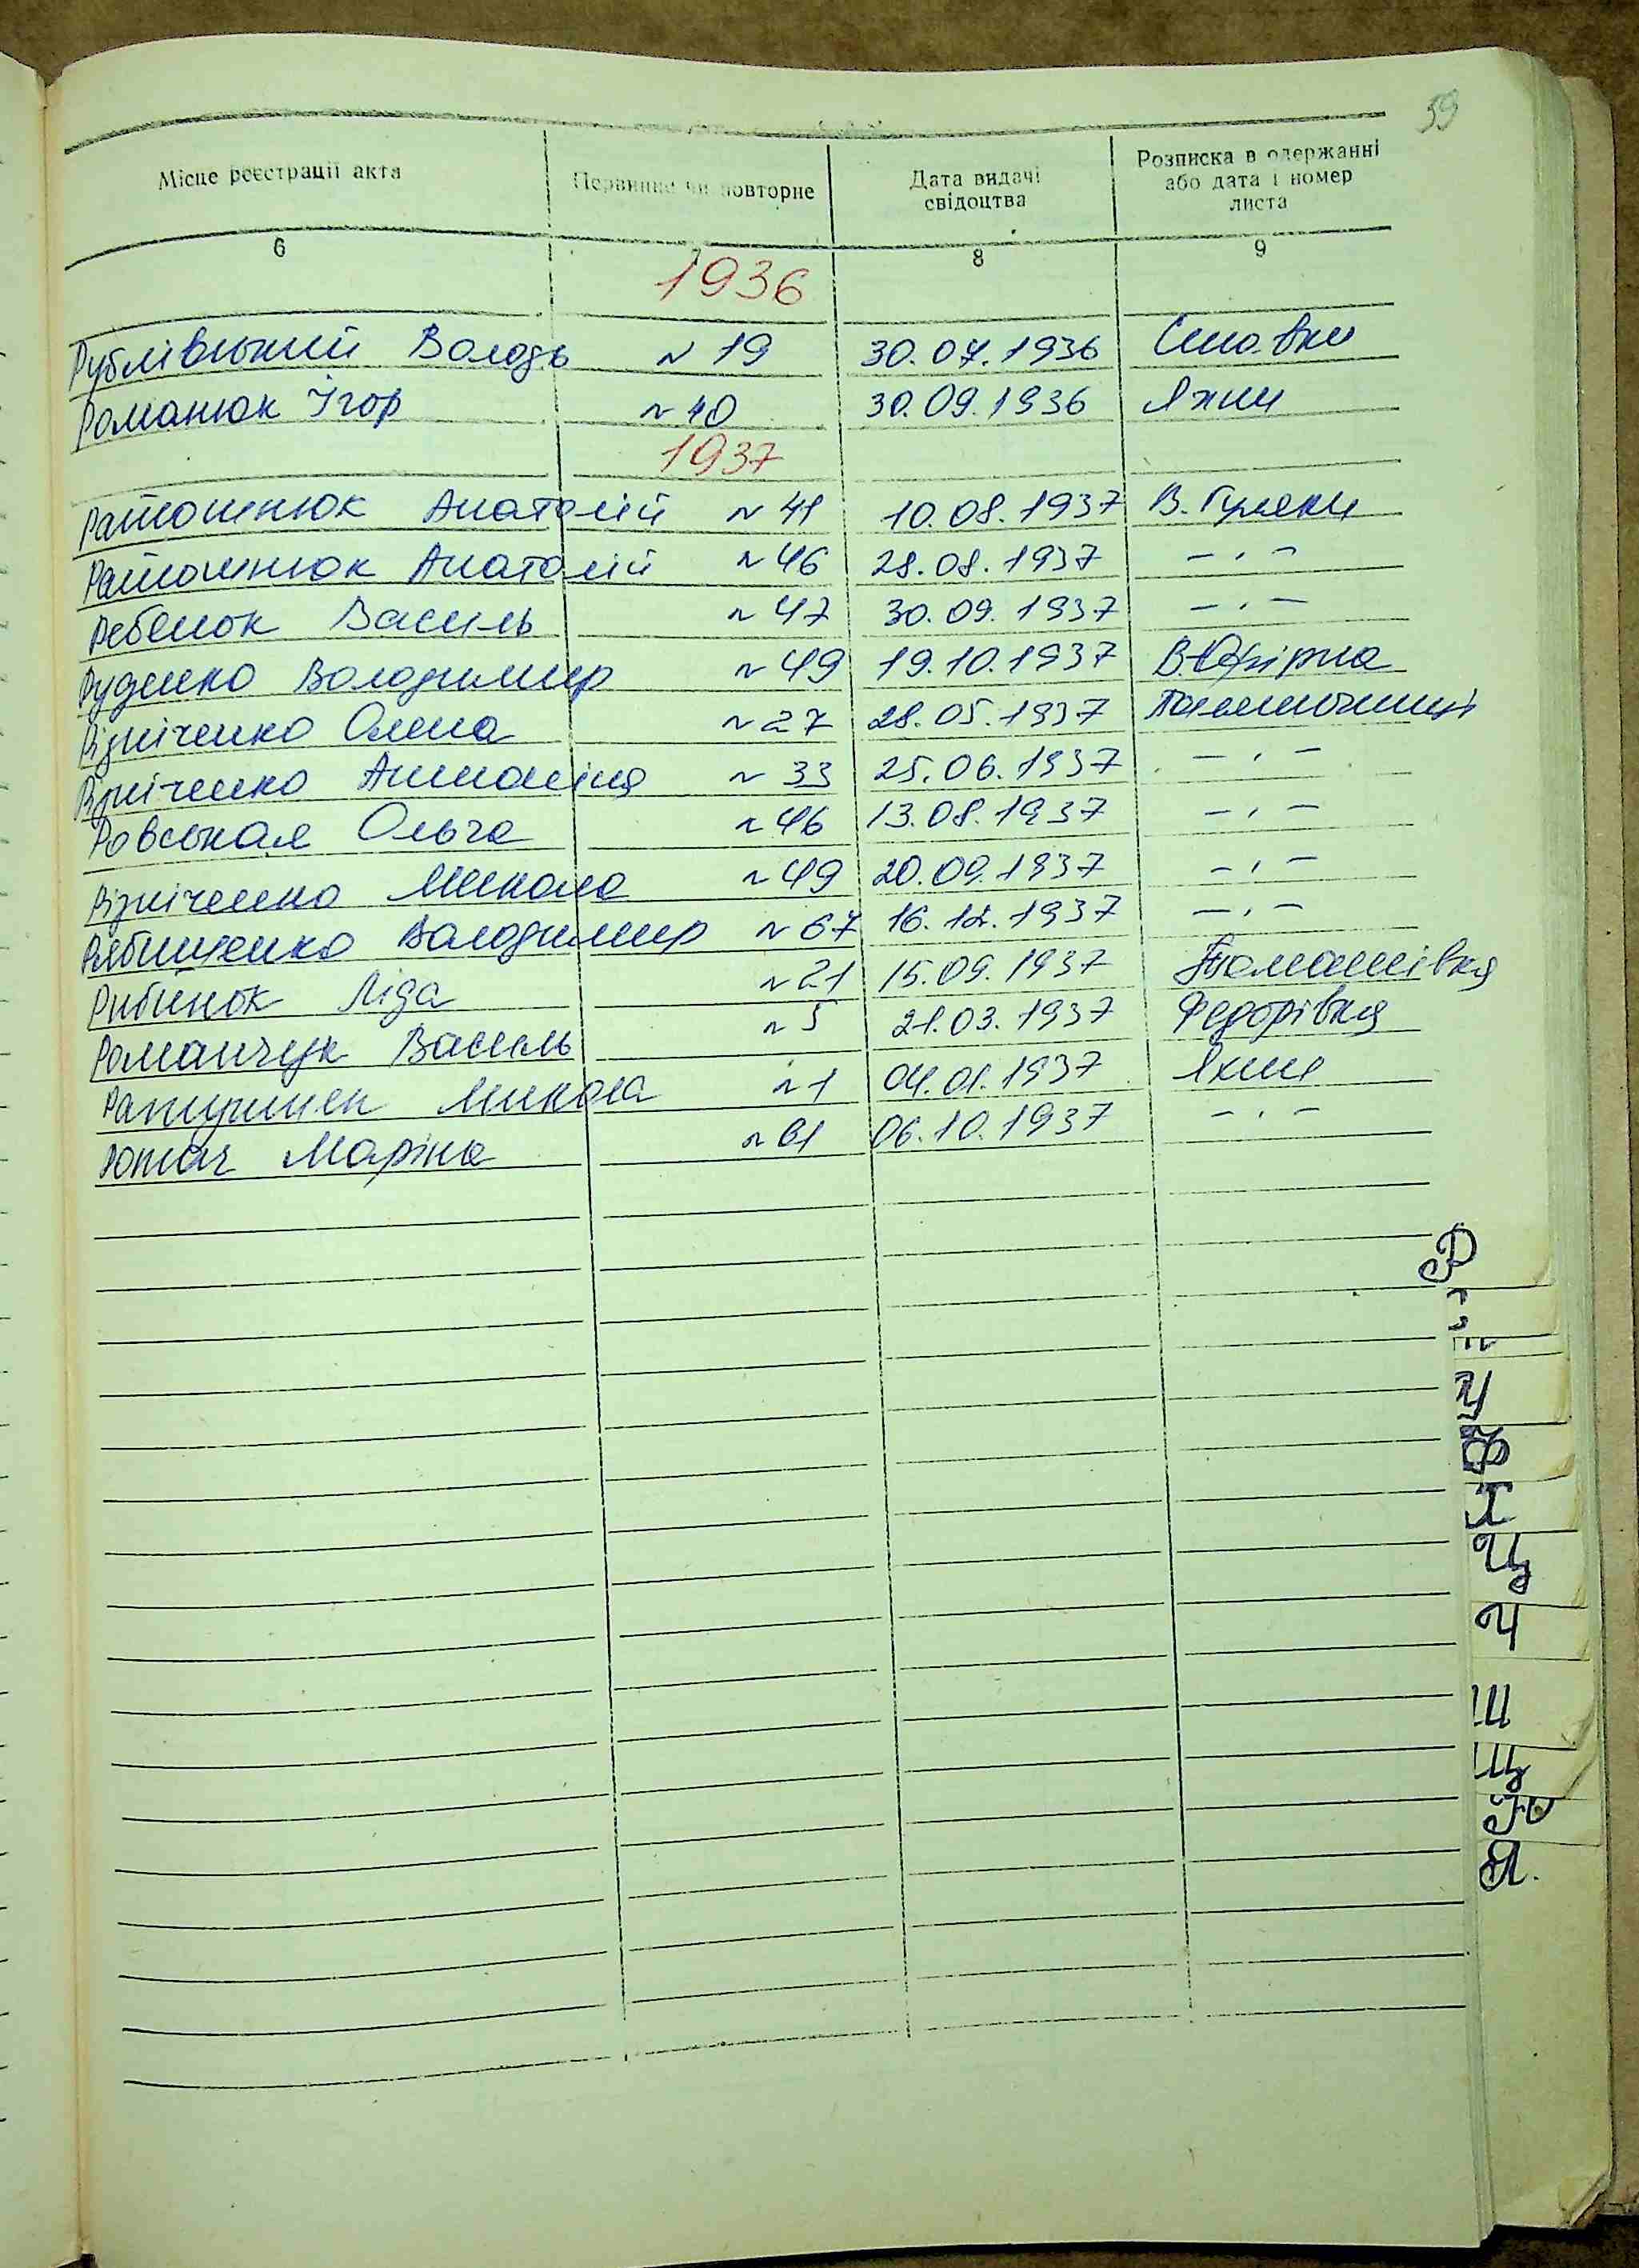 59
Місце реєстрації акта Первинне чи повторне Дата видачі свідоцтва Розписка в одержанні або дата і номер листа
6 7 8 9
1936
Рублівський Володь № 19 30.07.1936
Романюк Ігор № 40 30.09.1936 Яхни
1937
Ратошнюк Анатолій № 41 10.08.1937 В. Гуляки
Ратошнюк Анатолій № 46 28.08.1937 – " –
Ребенок Василь № 47 30.09.1937 – " –
Руденко Володимир № 49 19.10.1937 В-Офірна
Різніченко Олена № 27 28.05.1937
Різніченко № 33 25.06.1937 – " –
Ровская Ольга № 46 13.08.1937 – " –
Різніченко Микола № 49 20.09.1937 – " –
Рябишенко Володимир № 67 16.12.1937 – " –
Рибинок Ліда № 21 15.09.1937 Томашівка
Романчук Василь № 5 21.03.1937 Федорівка
Микола № 1 04.01.1937 Яхни
Ротач Маріна № 61 06.10.1937 – " –
Р
У
Ф
Х
Ц
Ч
Ш
Щ
Ю
Я.